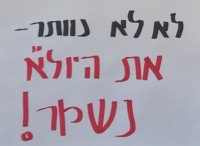 לא לא נוותר-
את היולא"א
נשקר!